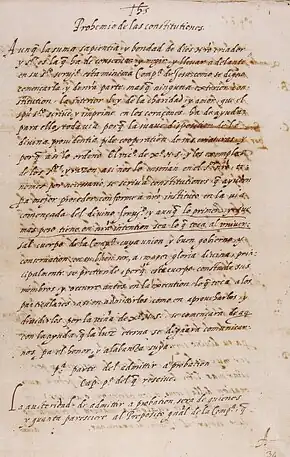 Jhs
Prohemio de las constitutiones.
Aunq̃ la suma sapientia y bondad de dios nr̃o criador
y s.ʳ es la q̃ ha de conseruar y regir y lleuar adelante
en su s.ᵗᵒ seruiᵒ esta minima Comp.ª de Jesu como se digno
comencarla y de nra parte mas q̃ ninguna exterior cons
titution la interior ley de la charidad y amor que el
spũ s.ᵗᵒ escriue y imprime en los coraçones ha de ayudar
para ello todauia porq̃ la suaue disposicion de la
diuina prouidentia pide cooperation de sus criaturas y
porq̃ asi lo ordeno el vic.º de xp̃o n.s. y los exemplos
de los s.ᵗᵒˢ y razon asi nos lo enseñan en el s.ʳ
necessario se scriuan constitutiones q̃ ayuden
para mejor proceder conforme a nr̃o instituto en la uia
començada del diuino seruiᵒ y aunq̃ lo primero y q̃
mas peso tiene en nr̃a intention sea lo q̃ toca al vniuer
sal cuerpo de la Comp.ª cuya union y buen gouierno y
conseruation en su bien ser a maior gloria diuina prin
cipalmente se pretende porq̃ este cuerpo consta de sus
miembros y occurre antes en la execution lo q̃ toca a los
particulares asi en admitirlos como en aprouecharlos y
diuidirlos por la uiña de xp̃o n.s. se començara de aq
con la ayuda q̃ la luz eterna se dignara comunicar
nos pa el honor y alabanza suya.
p.ª parte del admittir a probation
Cap. p.º del q̃ rescibe.
La autoridad de admittir a probation sera de quienes
y quanto paresciere al Preposito gñal de la Comp.ª q̃